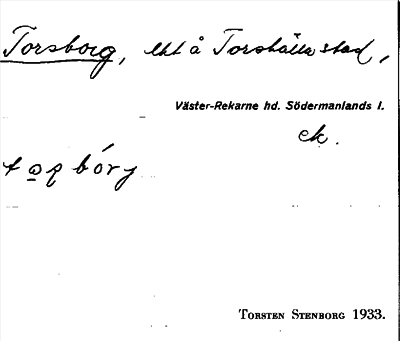 Torsborg, lht å Torshälla stad,
Väster-Rekarne hd. Södermanlands l.
ek.
Torsten Stenborg 1933.